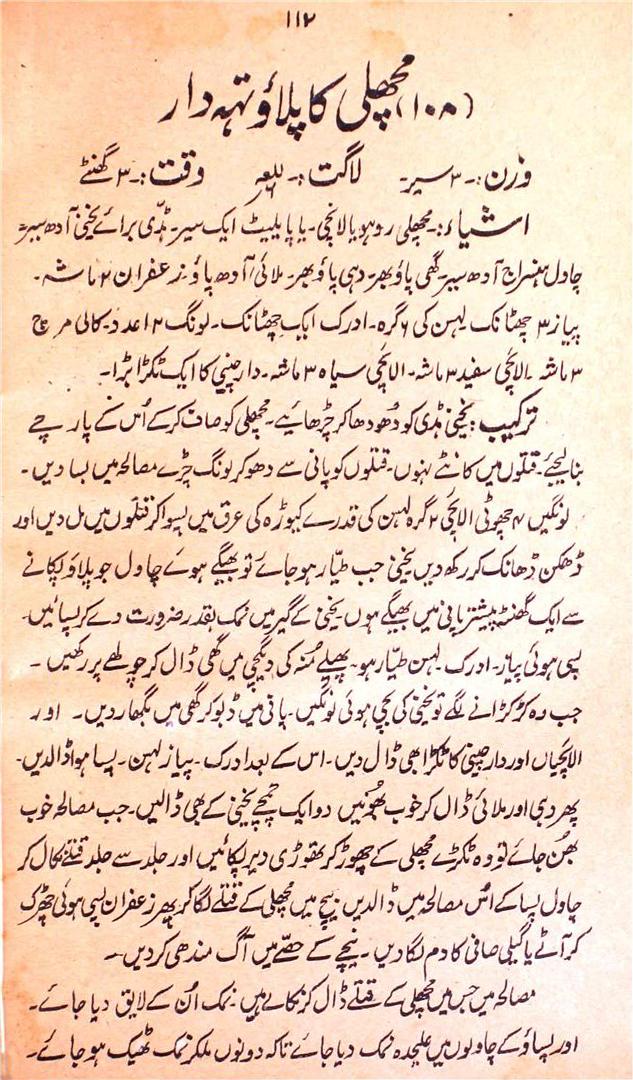 ۱۱۲
(۱۰۸) مچھلی کا پلاؤ تہہ دار
وزن:۔ ۳ سیر۔ لاگت:۔ وقت:۔ ۳ گھنٹے
اشیاء:۔ مچھلی روہو یا لانچی۔ یا پاپلیٹ ایک سیر۔ ہڈی برائے یخنی آدھ سیر۔
چاول ہنسراج آدھ سیر۔ گھی پاؤ بھر۔ دہی پاؤ بھر۔ ملائی آدھ پاؤ۔ زعفران ۲ ماشہ۔
پیاز ۳ چھٹانک لہسن کی ۶ گرہ۔ ادرک ایک چھٹانک۔ لونگ ۱۲ عدد۔ کالی مرچ
۳ ماشہ۔ الائچی سفید ۳ ماشہ۔ الائچی سیاہ ۳ ماشہ۔ دار چینی کا ایک ٹکڑا بڑا۔
ترکیب: یخنی ہڈی کو دُھو دھا کر چڑھائیے۔ مچھلی کو صاف کر کے اُس کے پارچے
بنا لیجئے۔ قتلوں میں کانٹے نہوں۔ قتلوں کو پانی سے دھو کر لونگ چڑے مصالحہ میں بسا دیں۔
لونگیں ۴ چھوٹی الائچی ۲ گرہ لہسن کی قدرے کیوڑہ کی عرق میں پسوا کر قتلوں میں مل دیں اور
ڈھکن ڈھانک کر رکھ دیں یخنی جب طیّار ہو جائے تو بھیگے ہوے چاول جو پلاؤ پکانے
سے ایک گھنٹہ پیشتر پانی میں بھیگے ہوں یخنی کے گیر میں نمک بقدر ضرورت دے کر پسائیں۔
پسی ہوئی پیاز۔ ادرک لہسن طیّار ہو۔ پھیلے مُنہ کی دیگچی میں گھی ڈال کر چولھے پر رکھیں۔
جب وہ کڑکڑانے لگے تو یخنی کی بچی ہوئی لونگیں۔ پانی میں ڈبو کر گھی میں بگھار دیں۔ اور
الائچیاں اور دار چینی کا ٹکڑا بھی ڈال دیں۔ اس کے بعد ادرک۔ پیاز لہسن۔ پسا ہوا ڈالدیں۔
پھر دہی اور ملائی ڈال کر خوب بھُونیں دو ایک چمچے یخنی کے بھی ڈالیں۔ جب مصالحہ خوب
بھُن جائے تو وہ ٹکڑے مچھلی کے چھوڑ کر تھوڑی دیر پکائیں اور جلد سے جلد قتلے نکال کر
چاول پسا کے اُس مصالحہ میں ڈالدیں۔ بیچ میں مچھلی کے قتلے لگا کر پھر زعفران پسی ہوئی چھڑک
کر آٹے یا گیلی صافی کا دم لگا دیں۔ نیچے کے حصّے میں آگ مندھی کر دیں۔
مصالحہ میں جس میں مچھلی کے قتلے ڈال کر نکالے ہیں۔ نمک اُن کے لایق دیا جائے۔
اور پساؤ کے چاولوں میں علیٰحدہ نمک دیا جائے تاکہ دونوں ملکر نمک ٹھیک ہو جائے۔